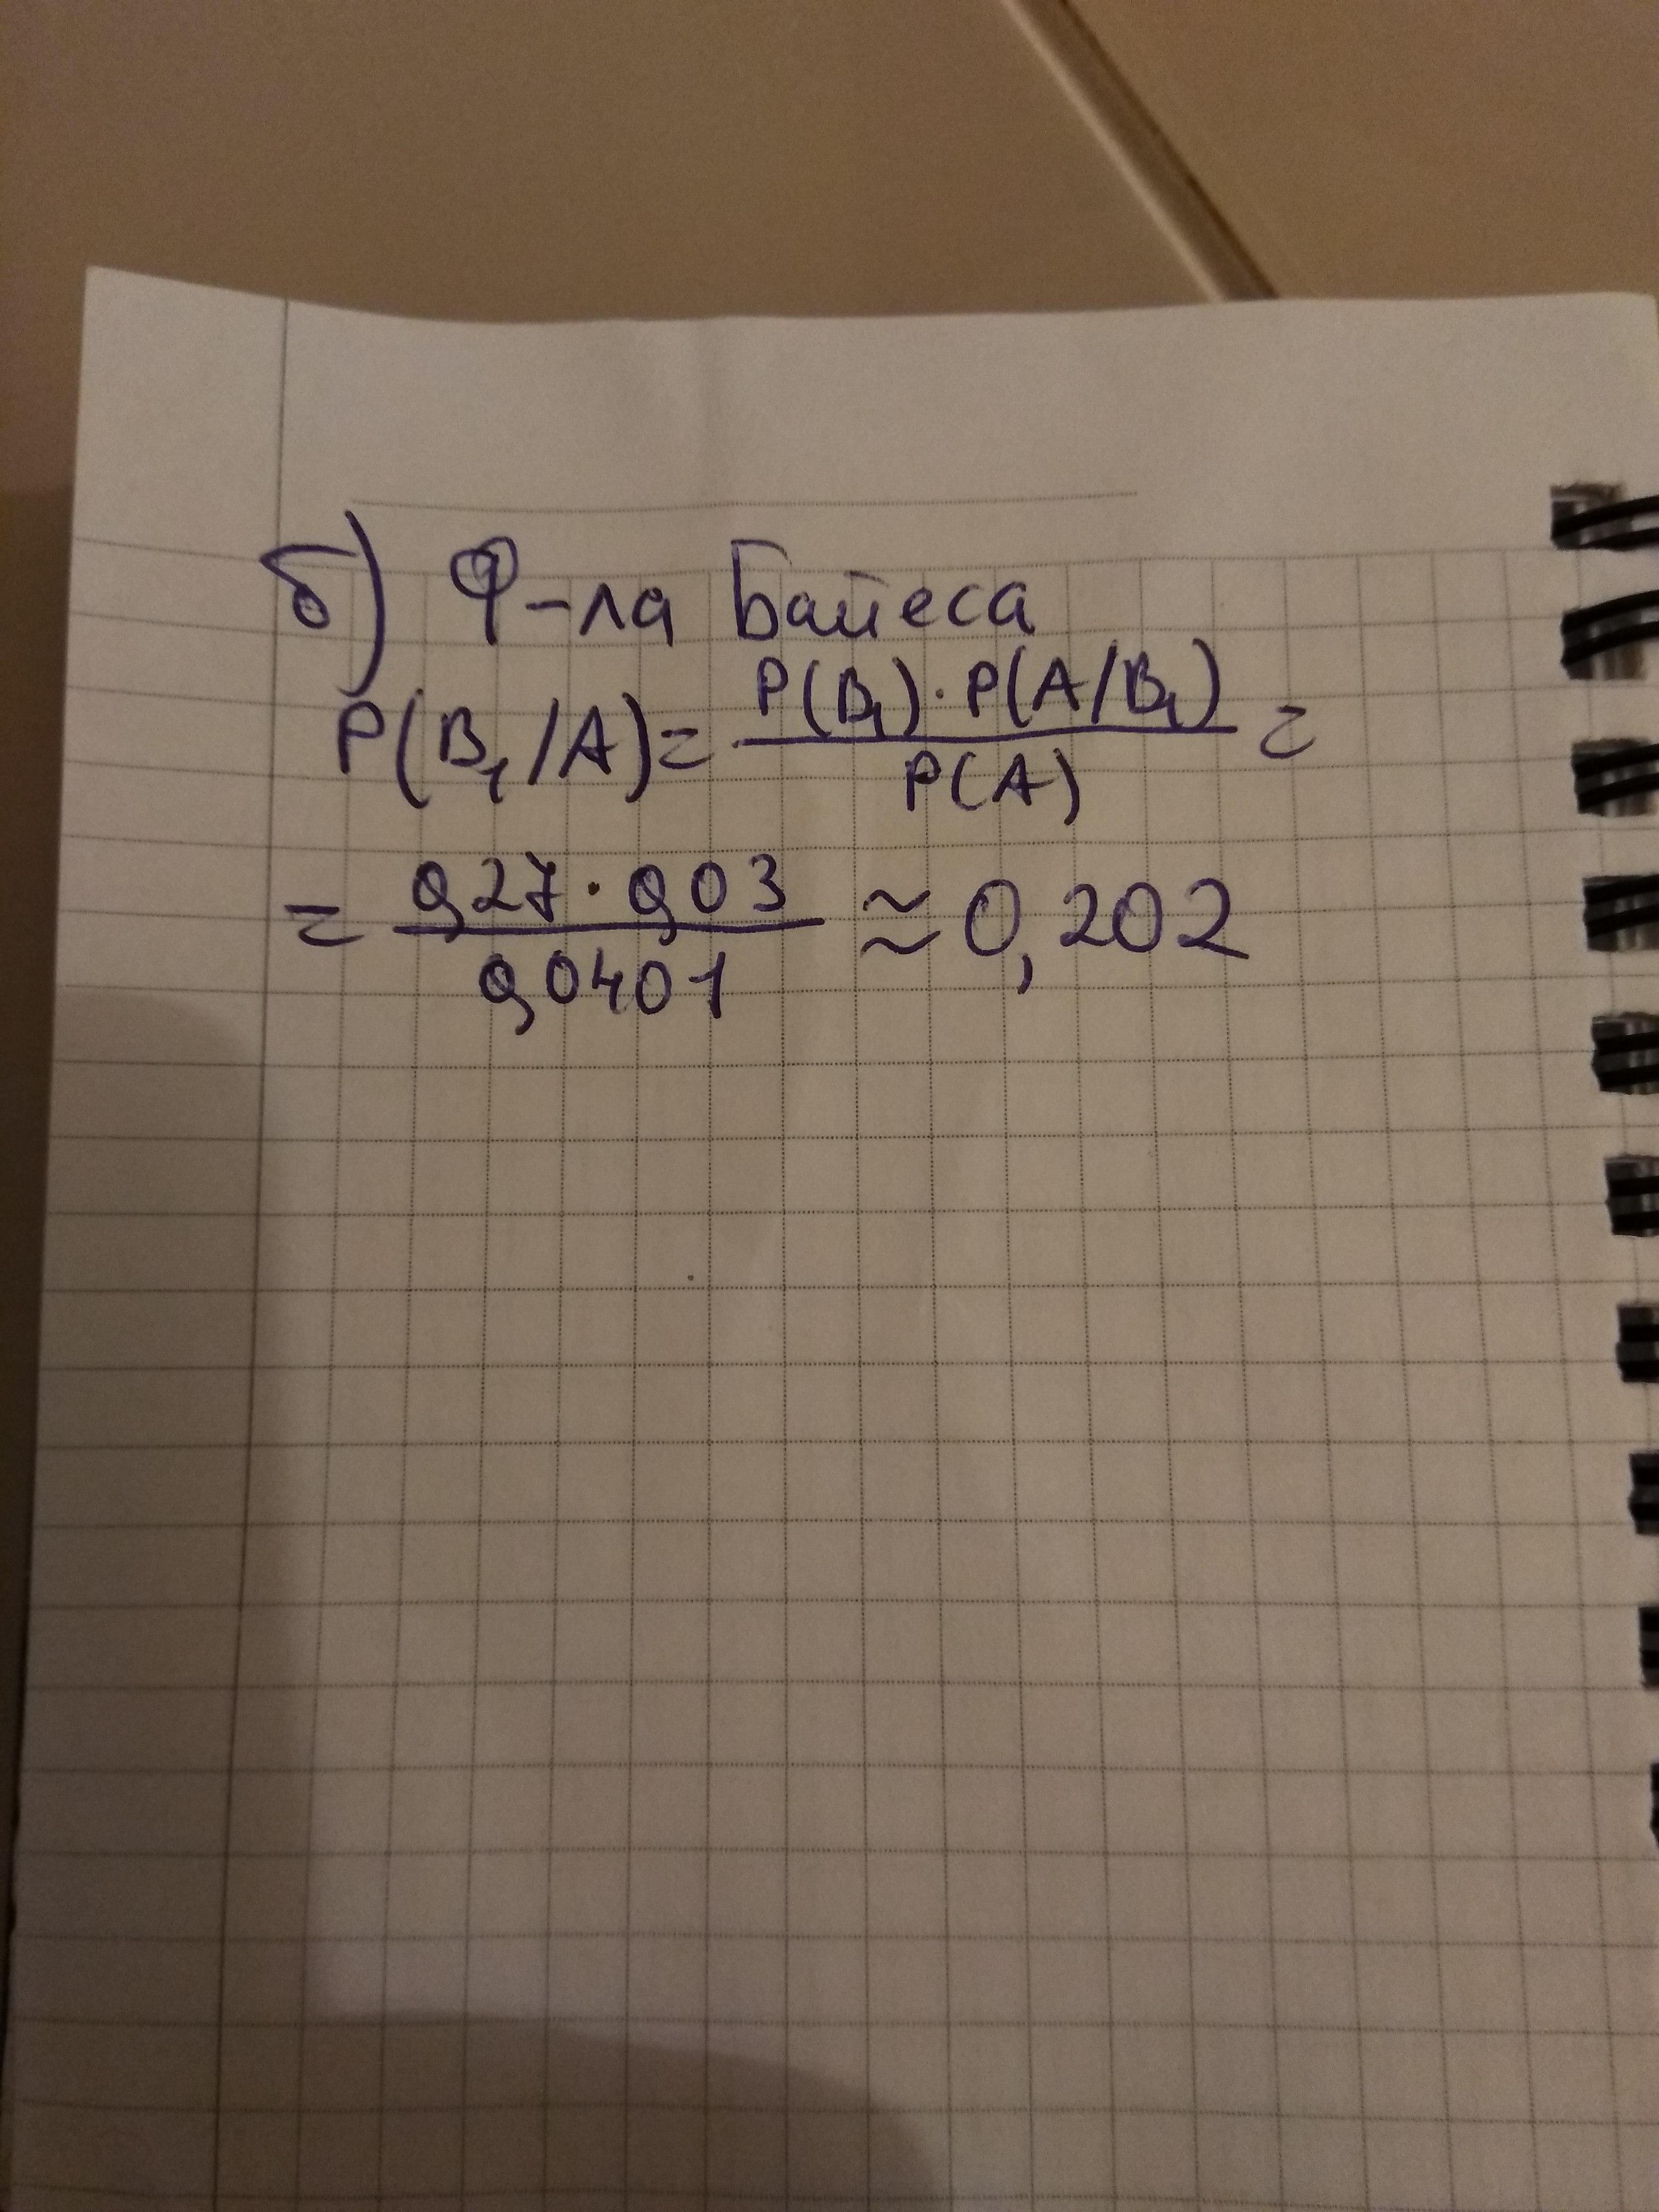 б) Ф-ла Байеса
P(B₁/A) = P(B₁)·P(A/B₁) / P(A) =
= 0,27 · 0,03 / 0,0401 ≈ 0,202